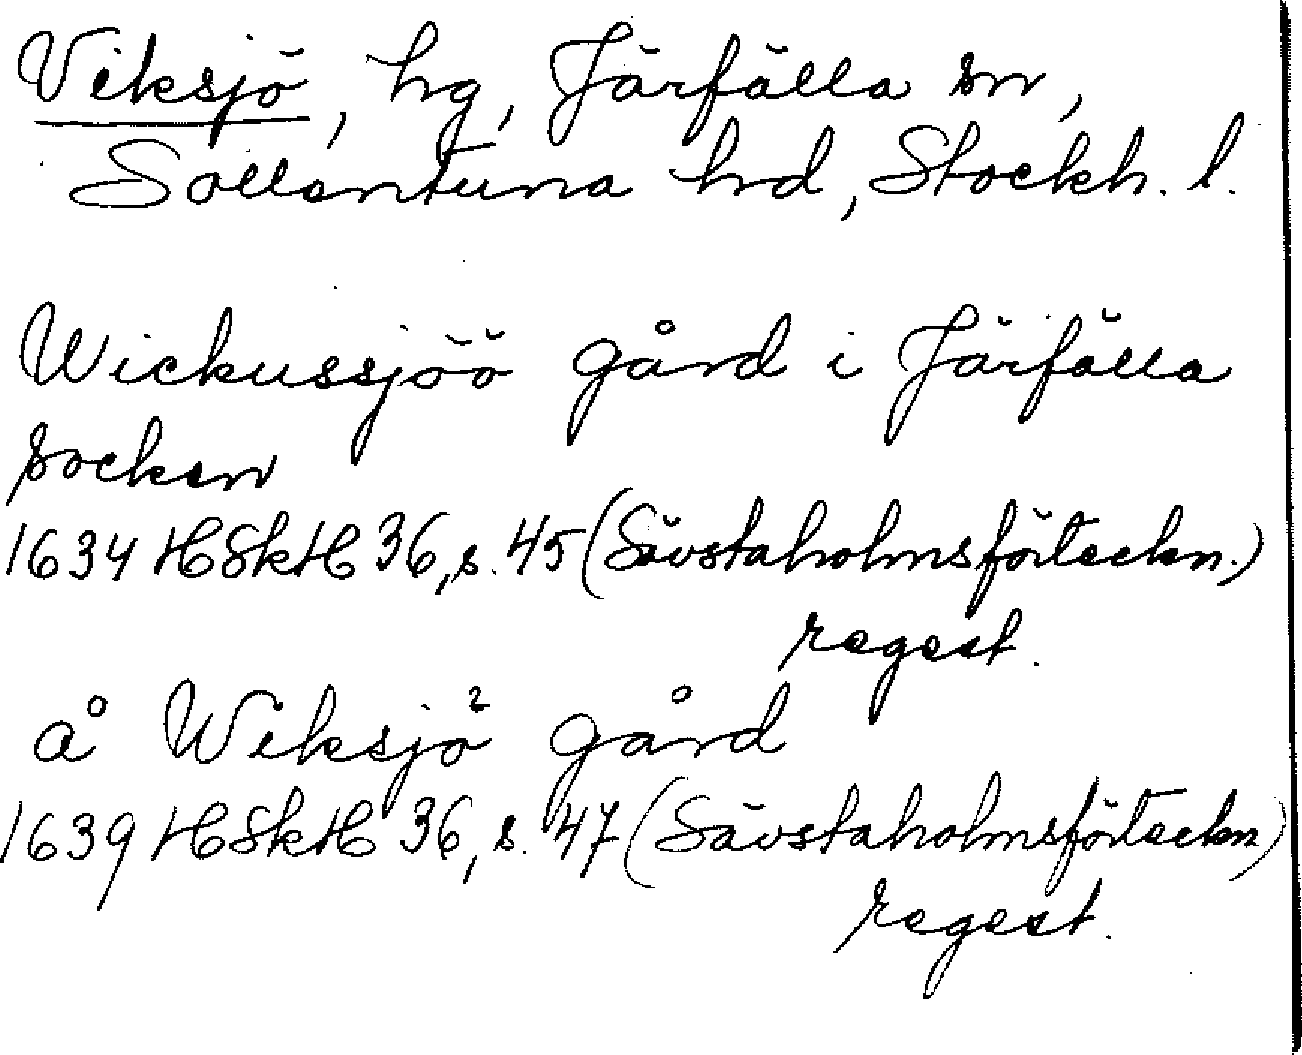 Viksjö, hg, Järfälla sn,
Sollentuna hd, Stockh. l.
Wickussjöö gård i Järfälla
socken
1634 HSkH 36, s. 45 (Sävstaholmsförteckn.)
regest.
å Wiksjö gård
1639 HSkH 36, s. 47 (Sävstaholmsförteckn)
regest.